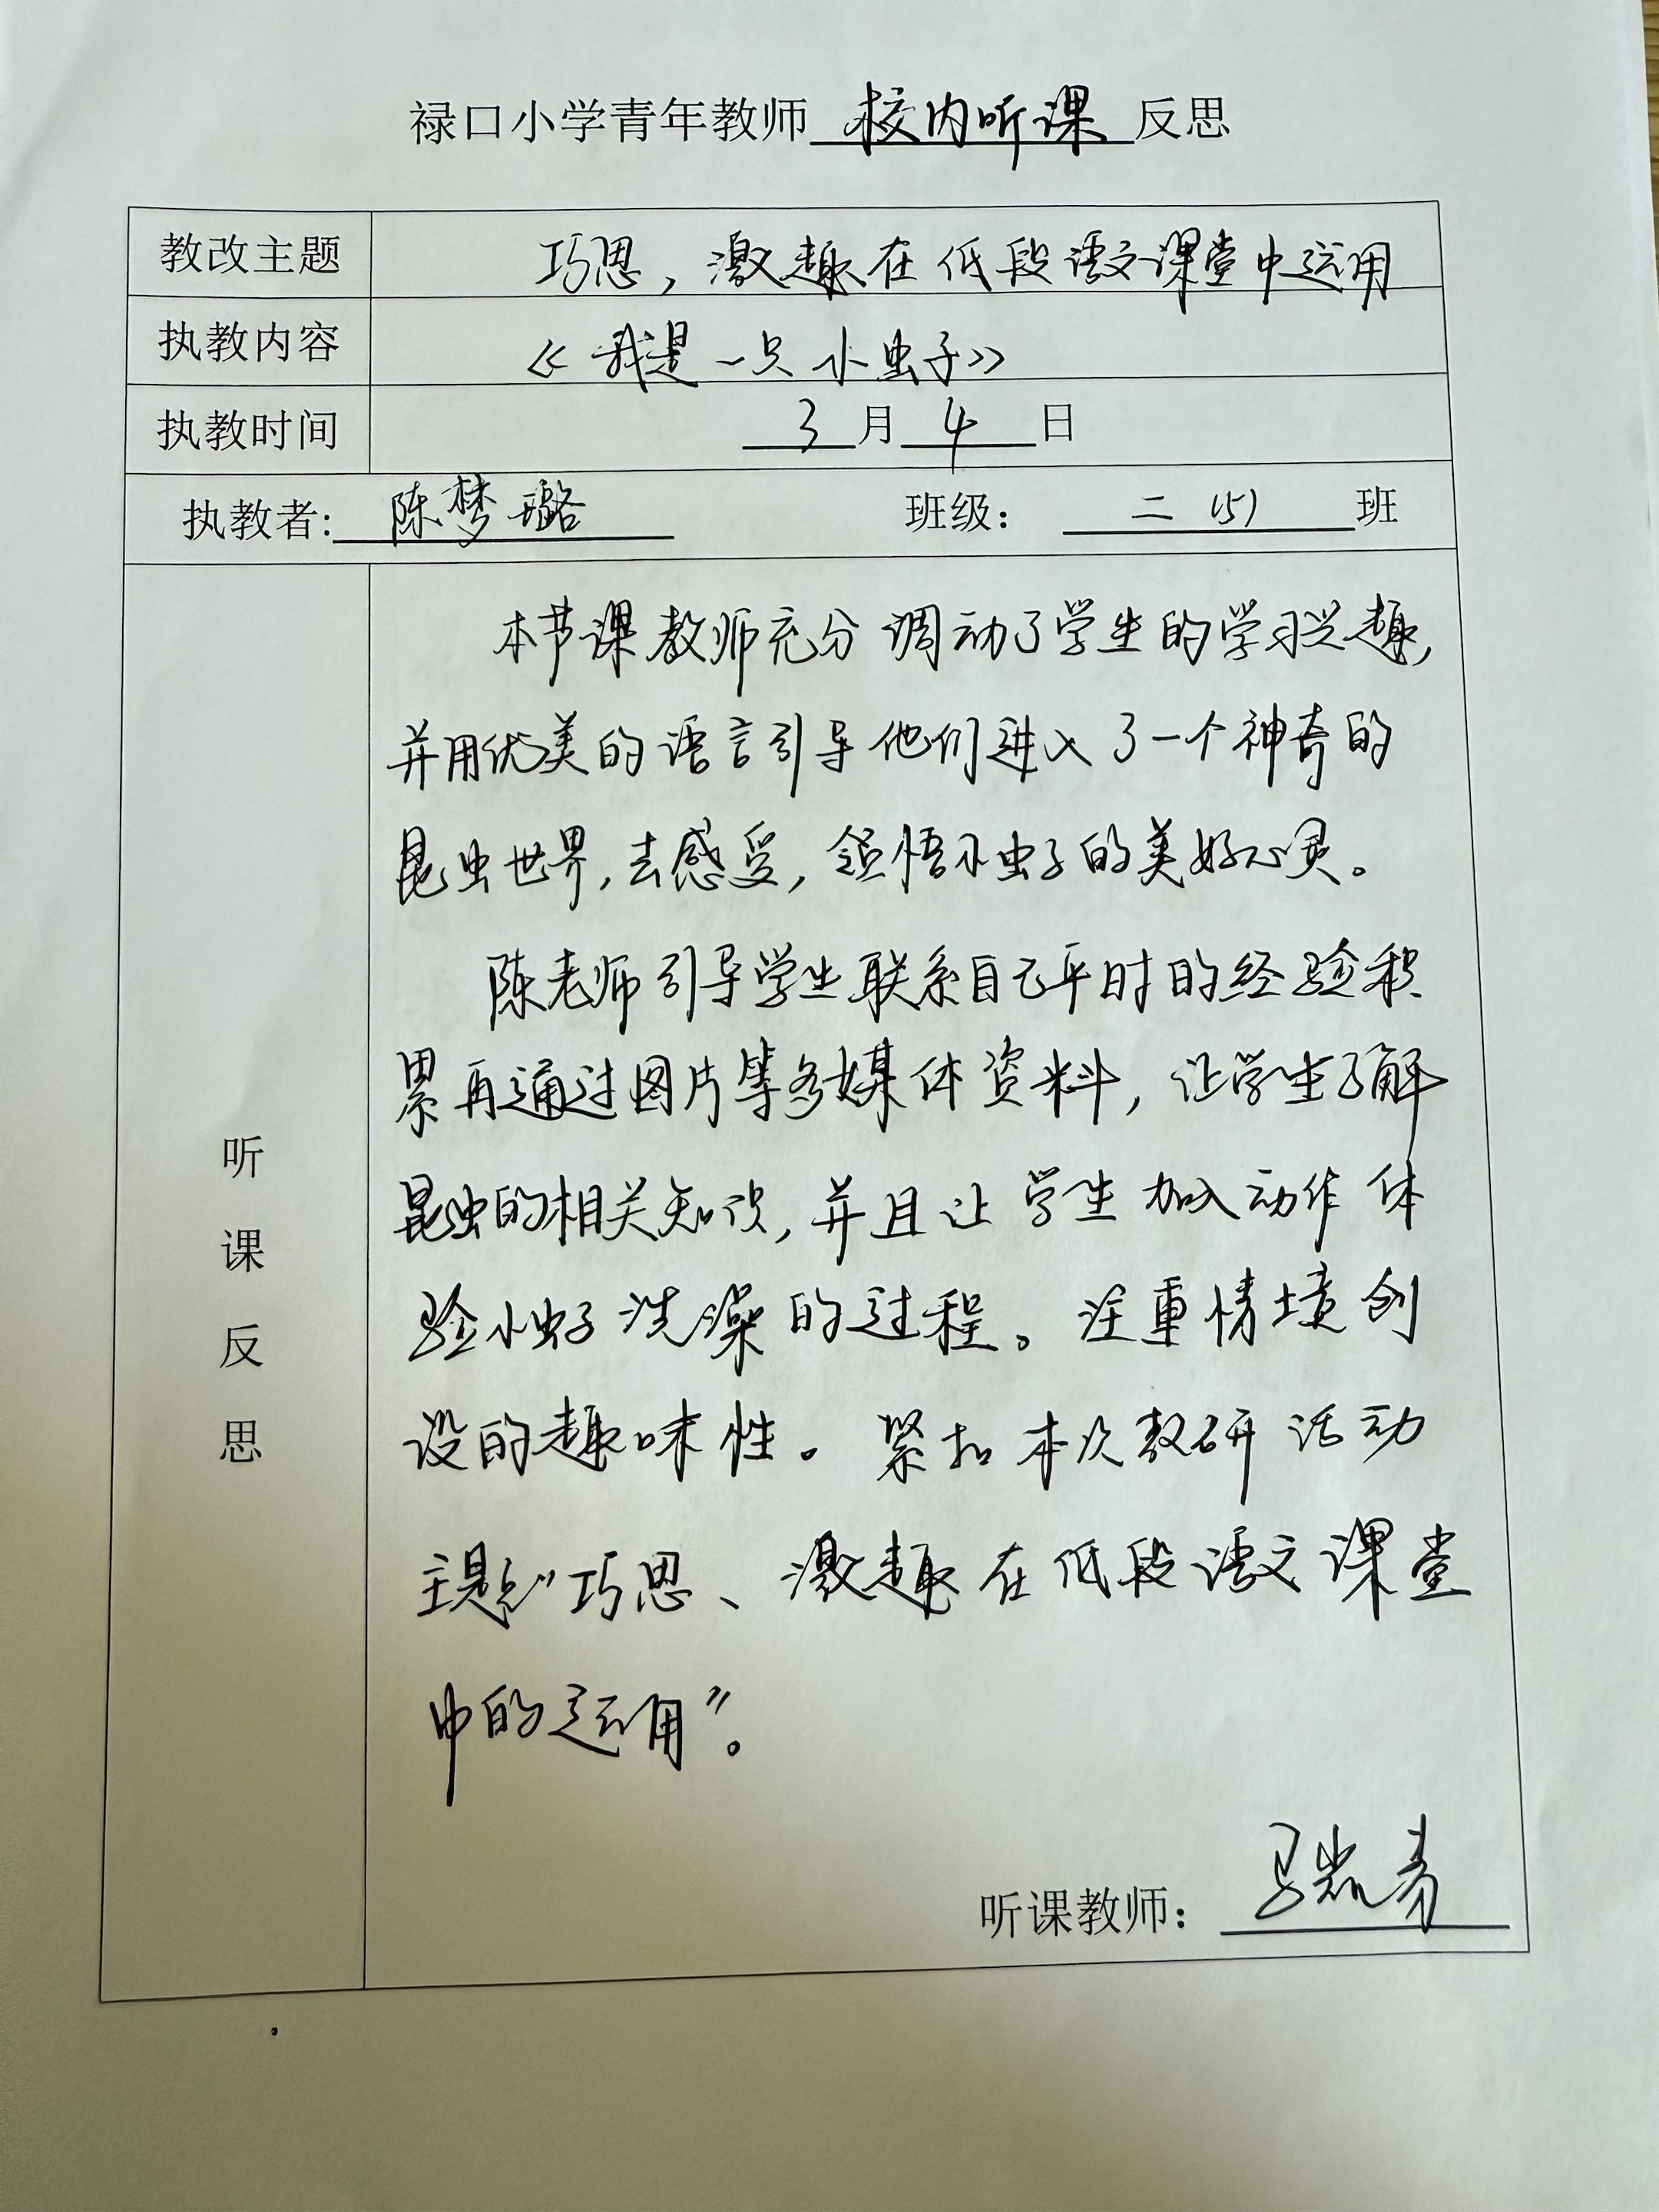 禄口小学青年教师校内听课反思
教改主题 巧思，激趣在低段语文课堂中运用
执教内容 《我是一只小虫子》
执教时间 3月4日
执教者：陈梦璐 班级：二（5）班
听课反思
本节课教师充分调动了学生的学习兴趣，
并用优美的语言引导他们进入了一个神奇的
昆虫世界，去感受，领悟小虫子的美好心灵。
陈老师引导学生联系自己平时的经验积
累再通过图片等多媒体资料，让学生了解
昆虫的相关知识，并且让学生加入动作体
验小虫子洗澡的过程。注重情境创
设的趣味性。紧扣本次教研活动
主题“巧思、激趣在低段语文课堂
中的运用”。
听课教师：